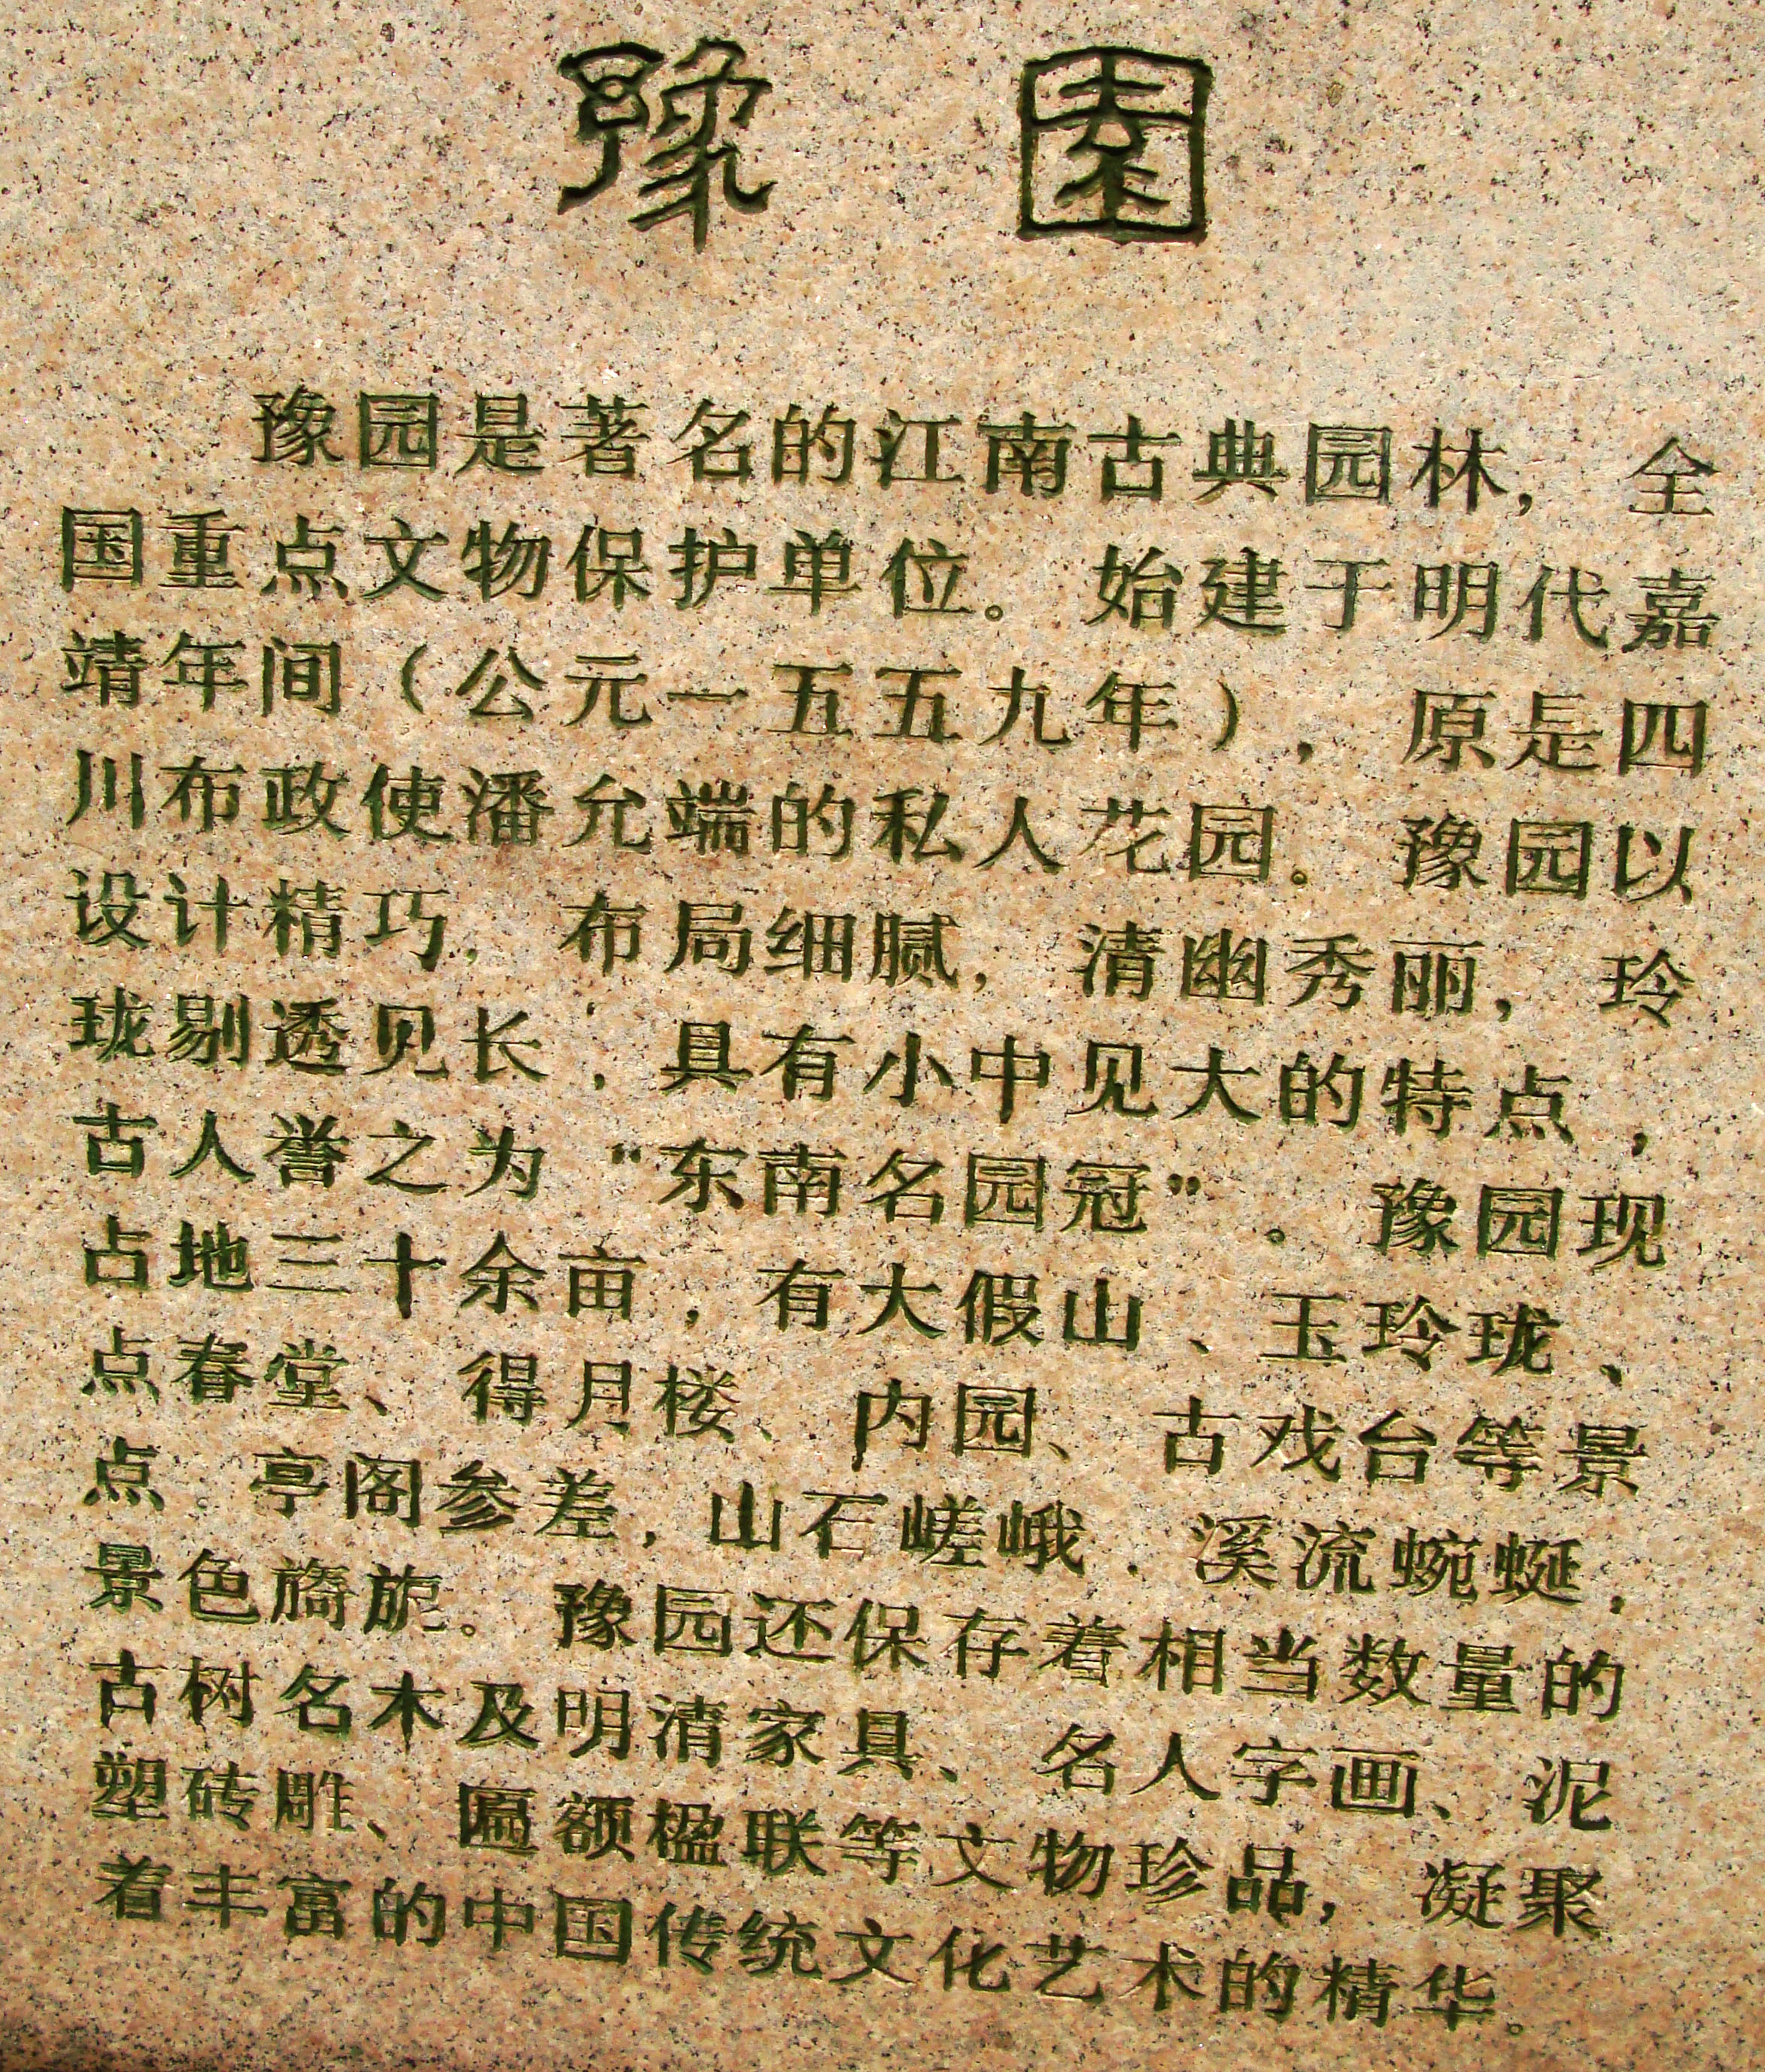 豫園
豫园是著名的江南古典园林，全
国重点文物保护单位。始建于明代嘉
靖年间（公元一五五九年），原是四
川布政使潘允端的私人花园。豫园以
设计精巧，布局细腻，清幽秀丽，玲
珑剔透见长，具有小中见大的特点，
古人誉之为“东南名园冠”。豫园现
占地三十余亩，有大假山、玉玲珑、
点春堂、得月楼、内园、古戏台等景
点。亭阁参差，山石嵯峨，溪流蜿蜒，
景色旖旎。豫园还保存着相当数量的
古树名木及明清家具、名人字画、泥
塑砖雕、匾额楹联等文物珍品，凝聚
着丰富的中国传统文化艺术的精华。